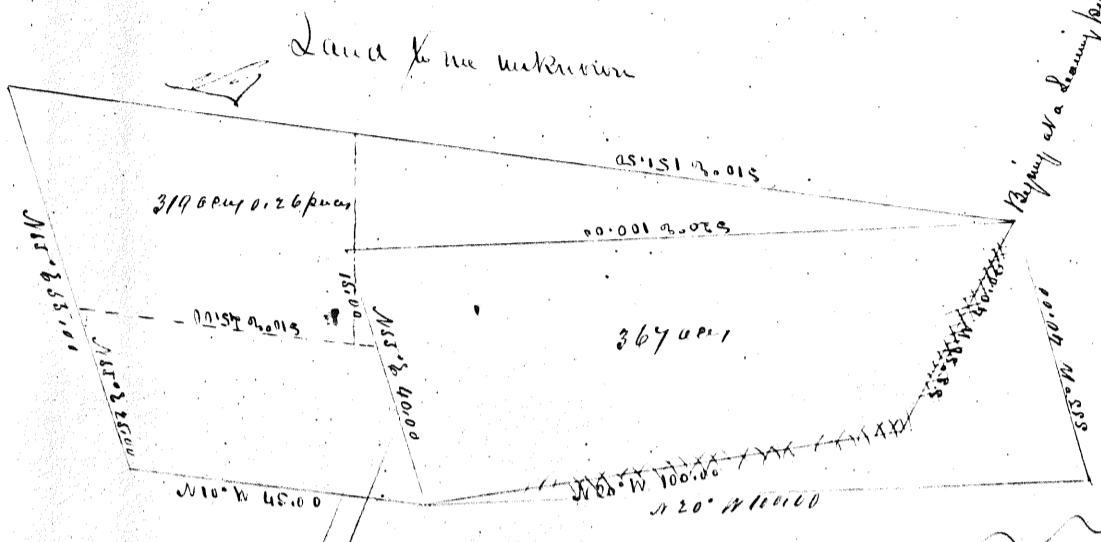 Land to me unknown
Begining at a Leaning
S10°E 151.50
319 acres 0.26 perches
S20°E 100.00
N55°E 53.00
S10°E 45.00
15.00
N55°E 40.00
367 acres
S55°W 40.00
S55°W 40.00
N55°E 25.00
N10°W 45.00
N20°W 100.00
N20°W 100.00